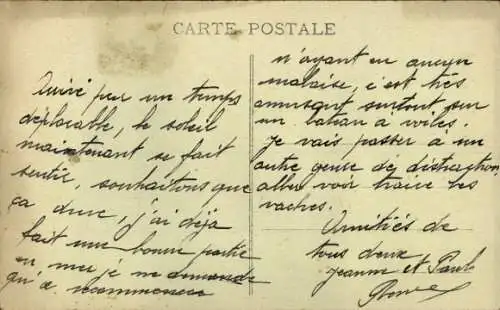 CARTE POSTALE
Arrivé par un temps
déplorable, le soleil
maintenant se fait
sentir, souhaitons que
ça dure, j'ai déjà
fait une bonne partie
en mer je ne demande
qu'à recommencer
n'ayant eu aucun
malaise, c'est très
amusant surtout sur
un bateau à voiles.
Je vais passer à un
autre genre de distraction,
aller voir traire les
vaches.
Amitiés de
tous deux
Jeanne et Paul